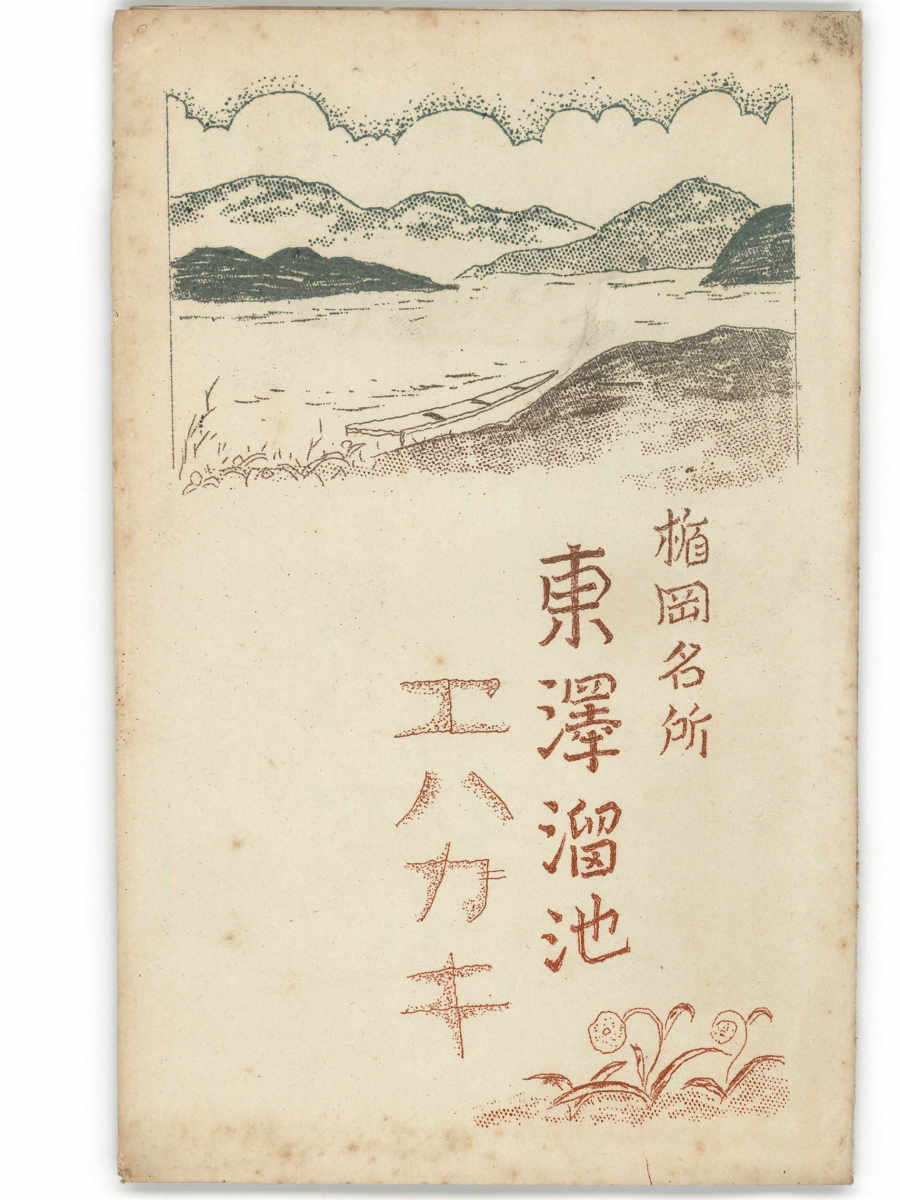 楯岡名所
東澤溜池
エハカキ